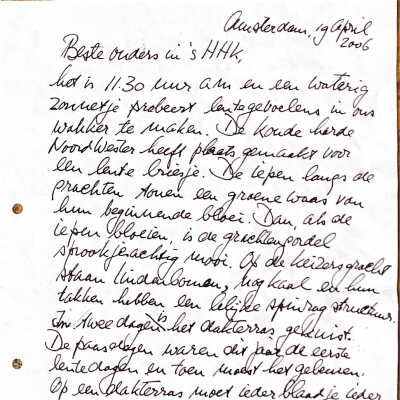 Amsterdam, 19 April
2006
Beste ouders in 's HHK,
het is 11.30 uur am en een waterig
zonnetje probeert lentegevoelens in ons
wakker te maken. De koude harde
NoordWester heeft plaats gemaakt voor
een lente briesje. De iepen langs de
grachten tonen een groene waas van
hun beginnende bloei. Dan, als de
iepen bloeien, is de grachtengordel
sprookjesachtig mooi. Op de Keizersgracht
staan lindenbomen, nog kaal en hun
takken hebben een lelijke spinrag structuur.
In twee dagen is het dakterras gekuist.
De paasdagen waren dit jaar de eerste
lentedagen en toen moest het gebeuren.
Op een dakterras moet ieder blaadje ieder